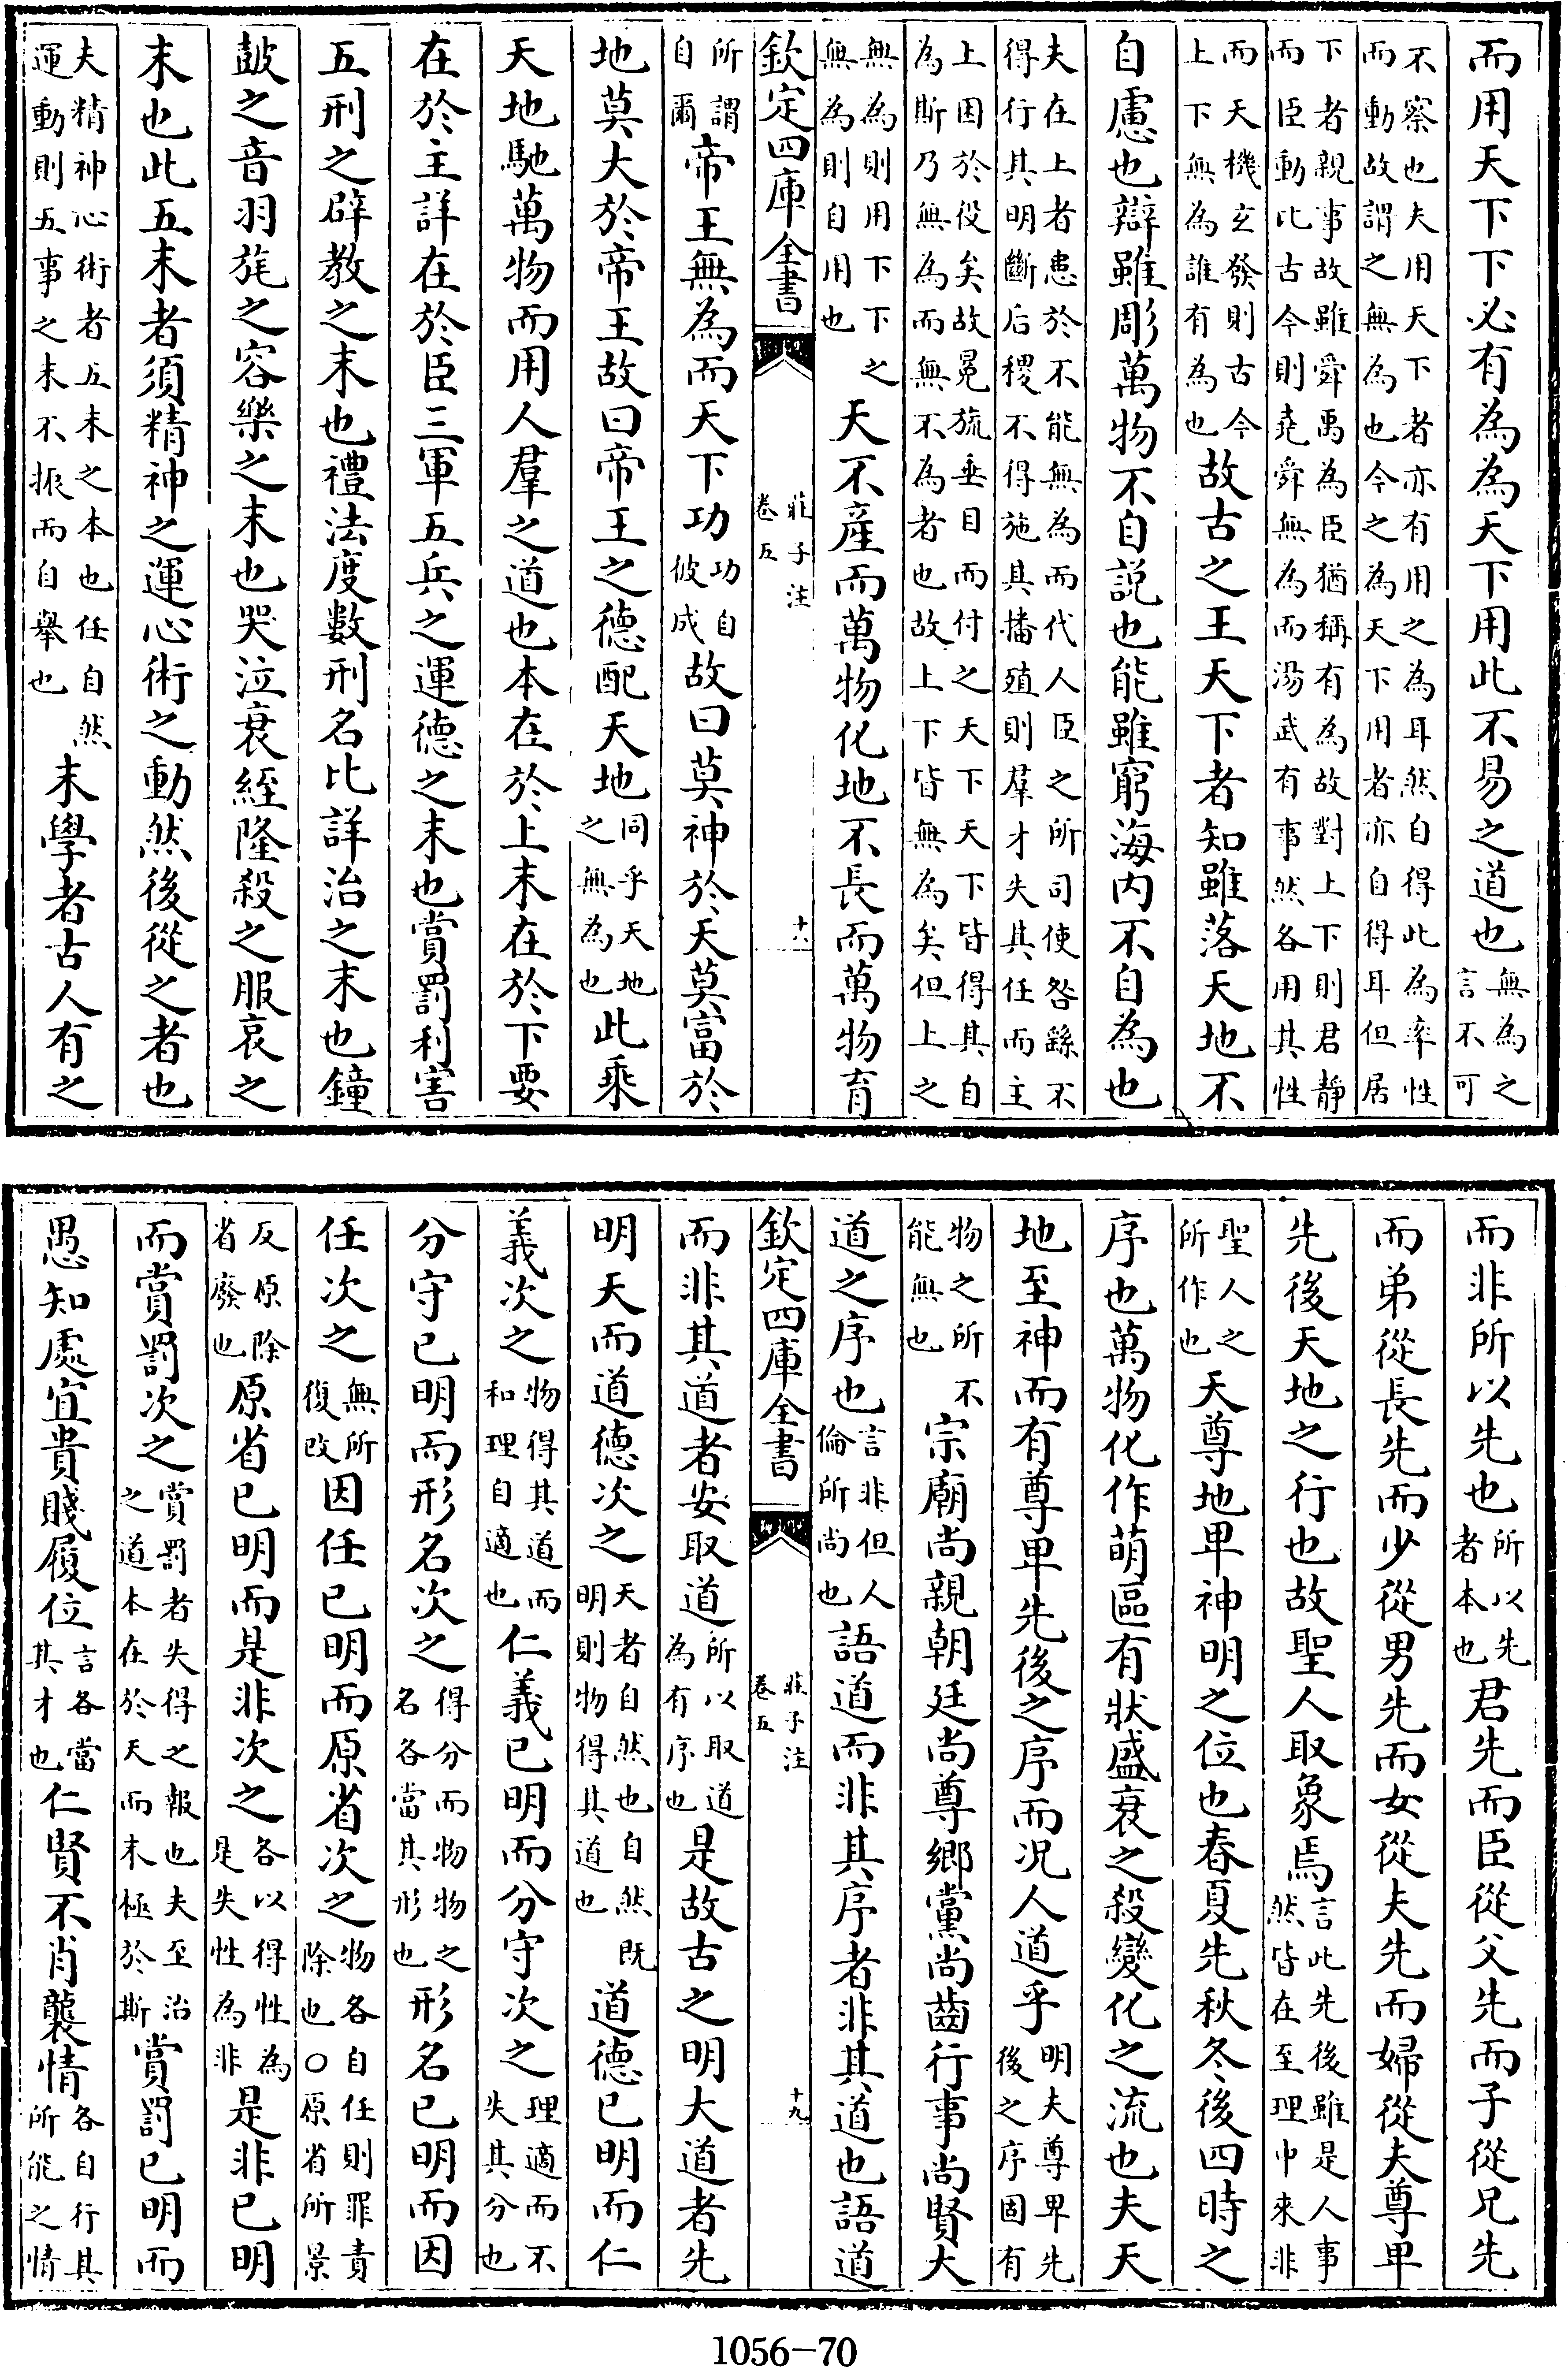 而用天下下必有為為天下用此不易之道也無為之言不可
不察也夫用天下者亦有用之為耳然自得此為率性
而動故謂之無為也今之為天下用者亦自得耳但居
下者親事故雖舜禹為臣猶稱有為故對上下則君靜
而臣動比古今則堯舜無為而湯武有事然各用其性
而天機玄發則古今上下無為誰有為也故古之王天下者知雖落天地不
自慮也辯雖彫萬物不自説也能雖窮海内不自為也
夫在上者患於不能無為而代人臣之所司使咎繇不
得行其明斷后稷不得施其播殖則羣才失其任而主
上困於役矣故冕旒垂目而付之天下天下皆得其自
為斯乃無為而無不為者也故上下皆無為矣但上之
無為則用下下之無為則自用也天不產而萬物化地不長而萬物育
欽定四庫全書
莊子注
卷五
十八
所謂自爾帝王無為而天下功功自彼成故曰莫神於天莫富於
地莫大於帝王故曰帝王之德配天地同乎天地之無為也此乘
天地馳萬物而用人羣之道也本在於上末在於下要
在於主詳在於臣三軍五兵之運德之末也賞罰利害
五刑之辟教之末也禮法度數刑名比詳治之末也鐘
鼓之音羽旄之容樂之末也哭泣衰絰隆殺之服哀之
末也此五末者須精神之運心術之動然後從之者也
夫精神心術者五末之本也任自然運動則五事之末不振而自舉也末學者古人有之
而非所以先也所以先者本也君先而臣從父先而子從兄先
而弟從長先而少從男先而女從夫先而婦從夫尊卑
先後天地之行也故聖人取象焉言此先後雖是人事然皆在至理中來非
聖人之所作也天尊地卑神明之位也春夏先秋冬後四時之
序也萬物化作萌區有狀盛衰之殺變化之流也夫天
地至神而有尊卑先後之序而况人道乎明夫尊卑先後之序固有
物之所不能無也宗廟尚親朝廷尚尊鄉黨尚齒行事尚賢大
道之序也言非但人倫所尚也語道而非其序者非其道也語道
欽定四庫全書
莊子注
卷五
十九
而非其道者安取道所以取道為有序也是故古之明大道者先
明天而道德次之天者自然也自然既明則物得其道也道德已明而仁
義次之物得其道而和理自適也仁義已明而分守次之理適而不失其分也
分守已明而形名次之得分而物物之名各當其形也形名已明而因
任次之無所復改因任已明而原省次之物各自任則罪責除也○原省所景
反原除省廢也原省已明而是非次之各以得性為是失性為非是非已明
而賞罰次之賞罰者失得之報也夫至治之道本在於天而末極於斯賞罰已明而
愚知處宜貴賤履位言各當其才也仁賢不肖襲情各自行其所能之情
1056-70